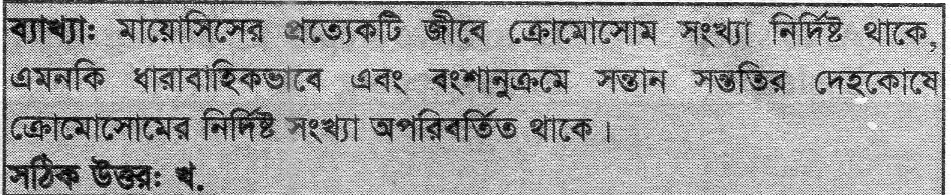 ব্যাখ্যা: মায়োসিসের প্রত্যেকটি জীবে ক্রোমোসোম সংখ্যা নির্দিষ্ট থাকে,
এমনকি ধারাবাহিকভাবে এবং বংশানুক্রমে সন্তান সন্ততির দেহকোষে
ক্রোমোসোমের নির্দিষ্ট সংখ্যা অপরিবর্তিত থাকে।
সঠিক উত্তর: খ.